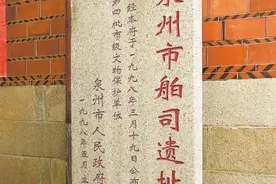 泉州市舶司遗址
经本府于一九九八年三月十九日公布
第四批市级文物保护单位
泉州市人民政府
一九九八年五月立